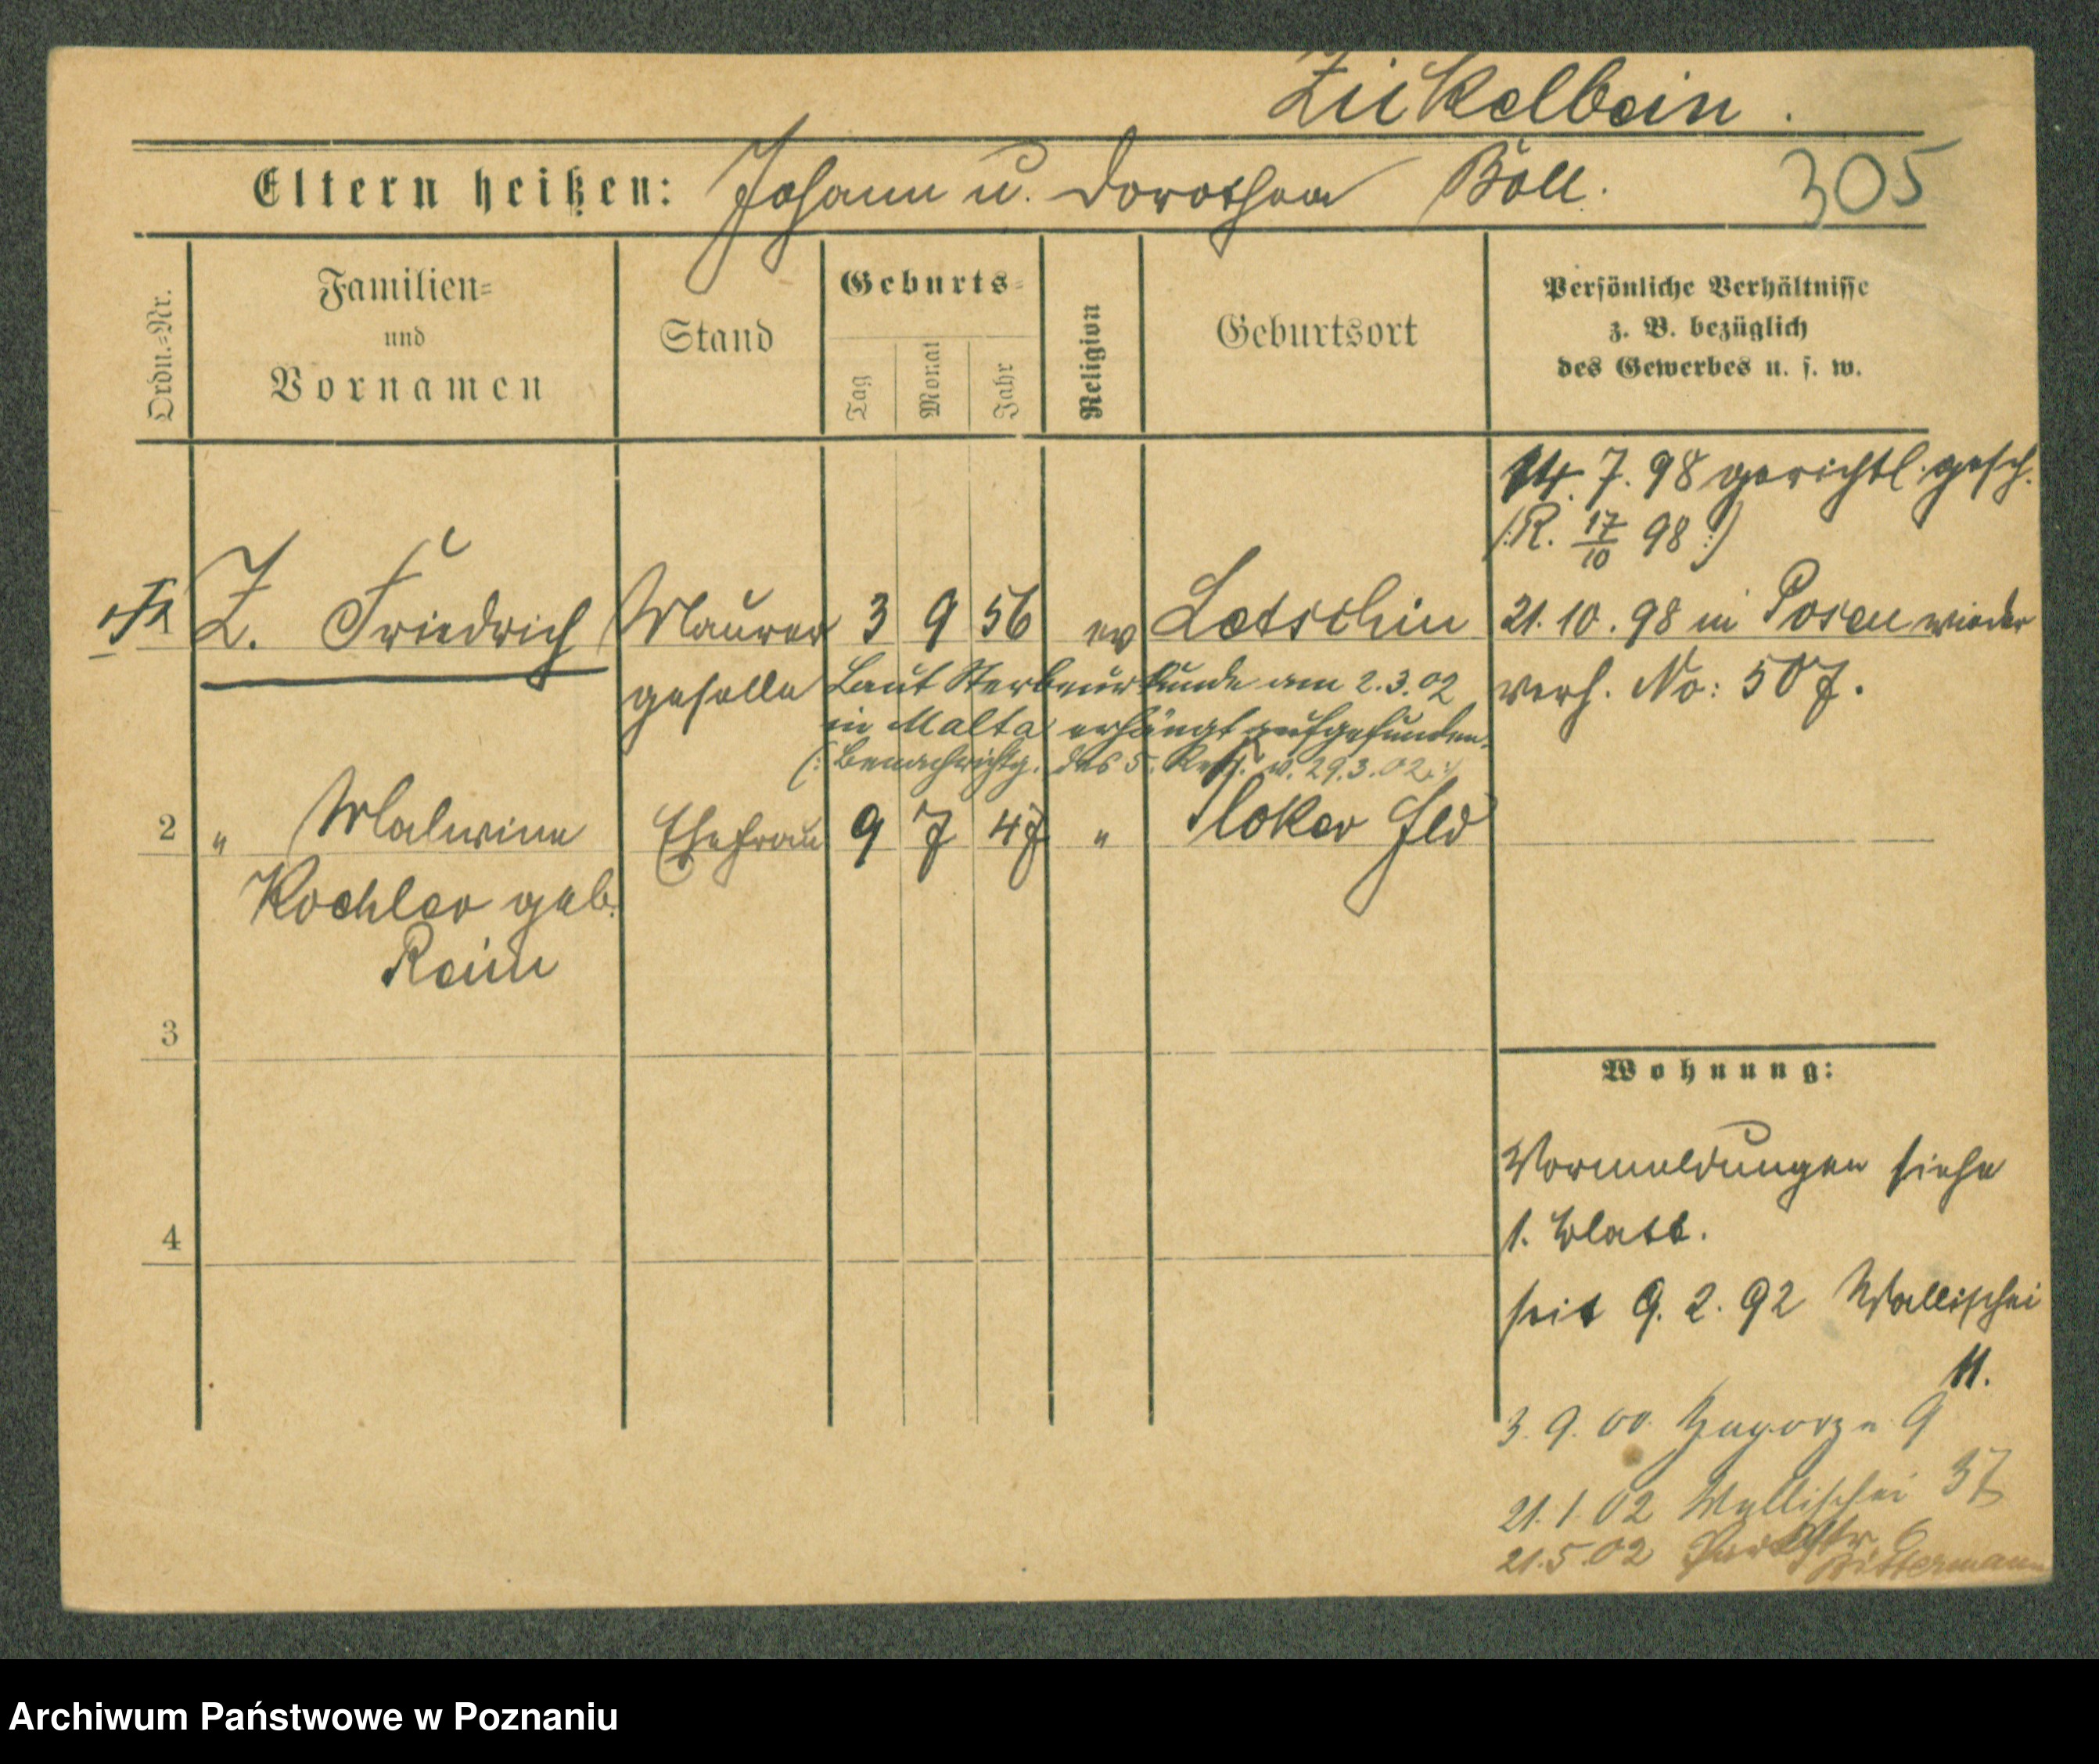 Zickelbein.
Eltern heißen: Johann u. Dorothea Böll. 305
Ordn.-Nr.
Familien-
und
Vornamen
Stand
Geburts-
Tag
Monat
Jahr
Religion
Geburtsort
Persönliche Verhältnisse
z. B. bezüglich
des Gewerbes u. s. w.
14. 7. 98 gerichtl. gesch.
(:R. 17/10 98:)
Z. Friedrich Maurer 3 9 56 ev Letschin 21. 10. 98 in Posen wieder
geselle Laut Sterbeurkunde am 2.3.02 verh. No: 507.
in Malta erhängt aufgefunden.
(: Benachrichtg. des 5. v. 29.3.02 :)
2 " Malwine Ehefrau 9 7 47 "
Kochler geb.
Reim
3
Wohnung:
Vormeldungen siehe
1. Blatt.
4
seit 9. 2. 92 Wallischei
11.
3. 9. 00. Zagorze 9
21. 1. 02 Wallischei 37
21. 5. 02
Bittermann
Archiwum Państwowe w Poznaniu